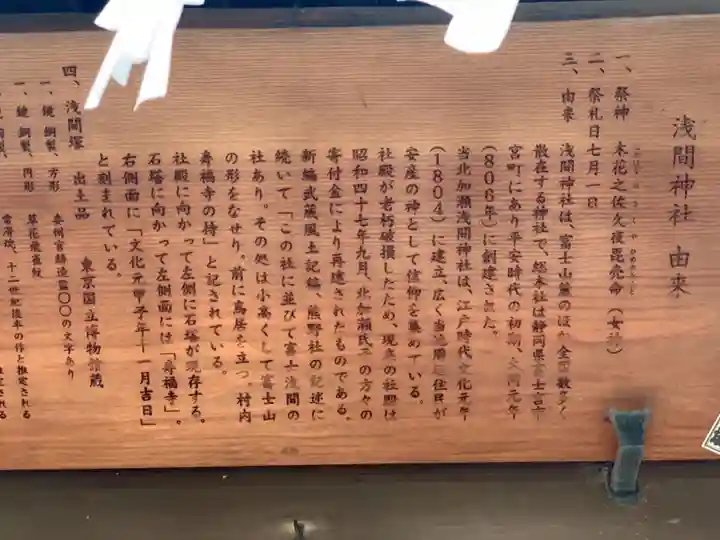 浅間神社 由来
一、祭神 木花之佐久夜毘売命（女神）
二、祭礼日七月一日
三、由来 浅間神社は、富士山麓のほか全国数多く
散在する神社で、総本社は静岡県富士宮市
宮町にあり平安時代の初期、大同元年
（806年）に創建された。
当北加瀬浅間神社は、江戸時代文化元年
（1804）に建立、広く当 近住民が
安産の神として信仰を集めている。
社殿が老朽破損したため、現在の社殿は
昭和四十七年九月、北加瀬氏子の方々の
寄付金により再建されたものである。
新編武蔵風土記稿、熊野社の記述に
続いて「この社に並びて富士浅間の
社あり。その処は小高くして富士山
の形をなせり。前に鳥居を立つ。村内
寿福寺の持」と記されている。
社殿に向かって左側に石塔が現存する。
石塔に向かって左側面には「寿福寺」。
右側面に「文化元甲子年十一月吉日」
と刻まれている。
四、浅間塚 出土品 東京国立博物館蔵
一、鏡 銅製、方形 秦州官鋳造監〇〇の文字あり
一、鏡 銅製、円形 草花飛雀紋
常滑焼、十二世紀後半の作と推定される